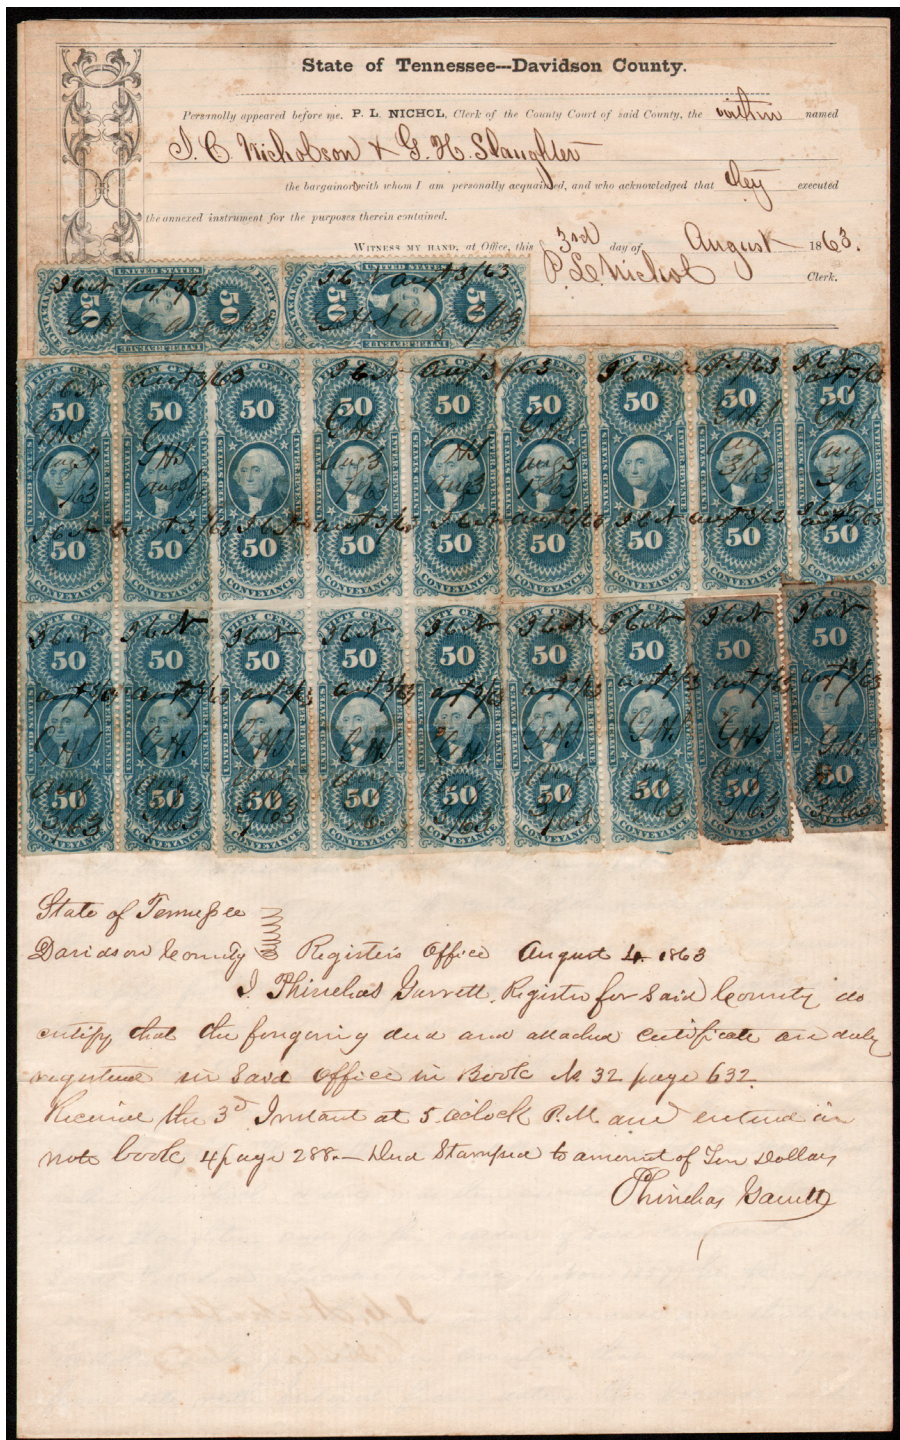 State of Tennessee---Davidson County.
Personally appeared before me, P. L. NICHOL, Clerk of the County Court of said County, the within named
J. C. Nicholson & G. H. Slaughter
the bargainors with whom I am personally acquainted, and who acknowledged that they executed
the annexed instrument for the purposes therein contained.
WITNESS MY HAND, at Office, this 3rd day of August 1863.
P. L. Nichol Clerk.
UNITED STATES
50 50 50
INTER. REVENUE
FIFTY CENTS
50 50 50 50 50 50 50 50 50
G H S
Aug 3/63
50 50 50 50 50 50 50 50 50
CONVEYANCE CONVEYANCE CONVEYANCE CONVEYANCE CONVEYANCE CONVEYANCE CONVEYANCE CONVEYANCE CONVEYANCE
50 50 50 50 50 50 50 50 50
G H S
50 50 50 50 50 50 50 50 50
CONVEYANCE
State of Tennessee
Davidson County Registers Office August 4 1863
I, Phinehas Garrett, Register for Said County do
certify that the foregoing deed and attached certificate are duly
registered in Said Office in Book No 32 page 632
Received the 3d Instant at 5 oclock P.M. and entered in
note book 4 page 288.— Deed Stamped to amount of Ten Dollars
Phinehas Garrett